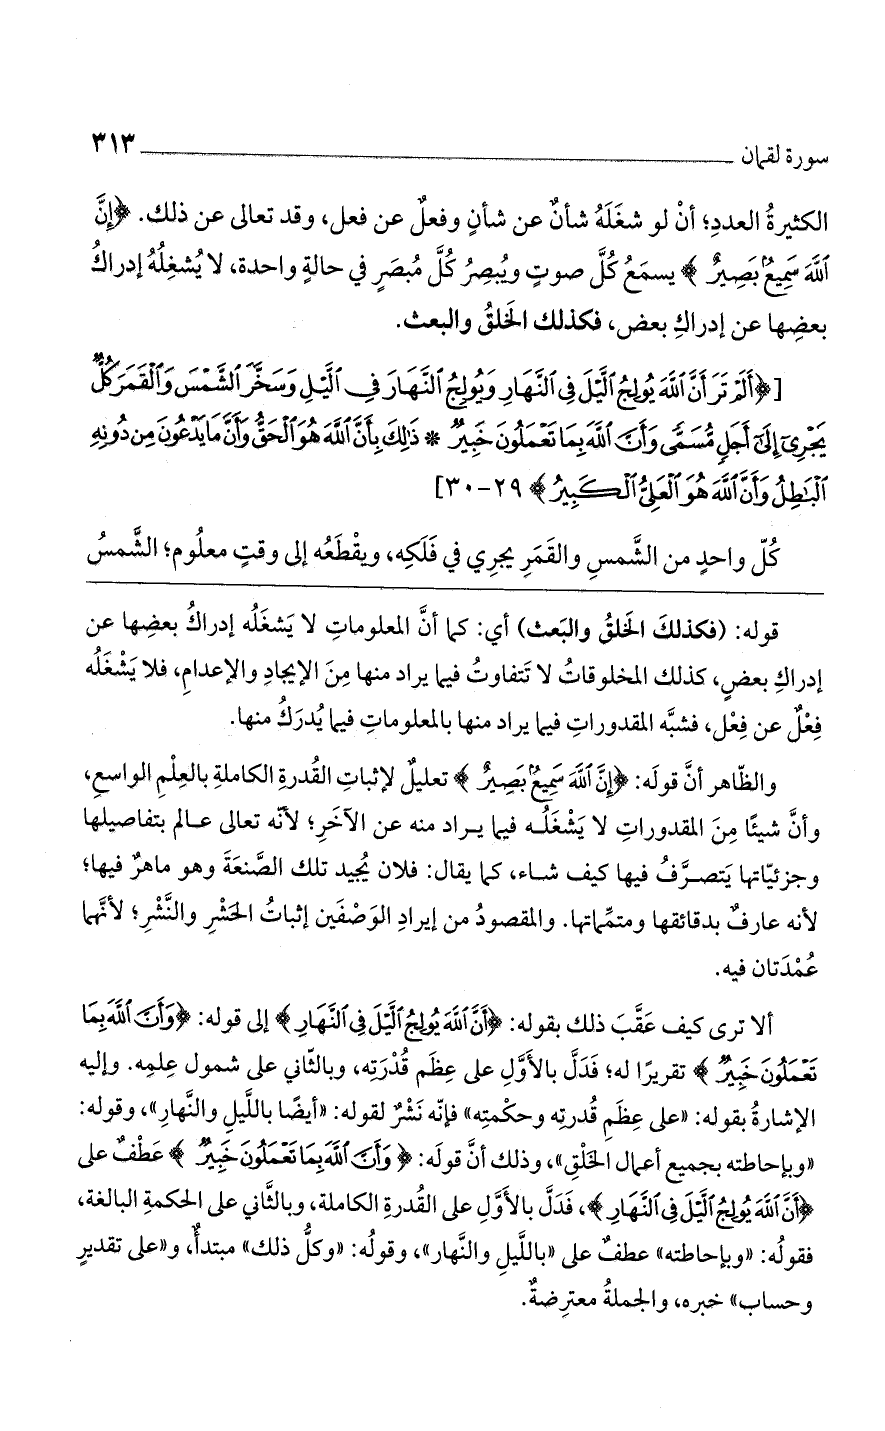 سورة لقمان ٣١٣
الكثيرةُ العددِ؛ أنْ لو شغَلَهُ شأنٌ عن شأنٍ وفعلٌ عن فعل، وقد تعالى عن ذلك. ﴿إِنَّ
ٱللَّهَ سَمِيعٌۢ بَصِيرٌ﴾ يسمَعُ كُلَّ صوتٍ ويُبصِرُ كُلَّ مُبصَرٍ في حالةٍ واحدة، لا يُشغِلُهُ إدراكُ
بعضِها عن إدراكِ بعض، فكذلك الخَلقُ والبعث.
[﴿أَلَمْ تَرَ أَنَّ ٱللَّهَ يُولِجُ ٱلَّيْلَ فِى ٱلنَّهَارِ وَيُولِجُ ٱلنَّهَارَ فِى ٱلَّيْلِ وَسَخَّرَ ٱلشَّمْسَ وَٱلْقَمَرَ كُلٌّ
يَجْرِىٓ إِلَىٰٓ أَجَلٍ مُّسَمًّى وَأَنَّ ٱللَّهَ بِمَا تَعْمَلُونَ خَبِيرٌ * ذَٰلِكَ بِأَنَّ ٱللَّهَ هُوَ ٱلْحَقُّ وَأَنَّ مَا يَدْعُونَ مِن دُونِهِ
ٱلْبَٰطِلُ وَأَنَّ ٱللَّهَ هُوَ ٱلْعَلِىُّ ٱلْكَبِيرُ﴾ ٢٩-٣٠]
كُلّ واحدٍ من الشَّمسِ والقَمَرِ يجري في فَلَكِه، ويقْطَعُه إلى وقتٍ معلُوم؛ الشَّمسُ
قوله: (فكذلكَ الخَلقُ والبَعث) أي: كما أنَّ المعلوماتِ لا يَشغَلُه إدراكُ بعضِها عن
إدراكِ بعضٍ، كذلك المخلوقاتُ لا تَتفاوتُ فيما يراد منها مِنَ الإيجادِ والإعدامِ، فلا يَشْغَلُه
فِعْلٌ عن فِعْل، فشبَّه المقدوراتِ فيما يراد منها بالمعلوماتِ فيما يُدرَكُ منها.
والظّاهر أنَّ قولَه: ﴿إِنَّ ٱللَّهَ سَمِيعٌۢ بَصِيرٌ﴾ تعليلٌ لإثباتِ القُدرةِ الكاملةِ بالعِلمِ الواسع،
وأنَّ شيئًا مِنَ المقدوراتِ لا يَشْغَلُه فيما يراد منه عن الآخَرِ؛ لأنّه تعالى عالم بتفاصيلها
وجزئيّاتها يَتصرَّفُ فيها كيف شاء، كما يقال: فلان يُجيد تلك الصَّنعَةَ وهو ماهرٌ فيها؛
لأنه عارفٌ بدقائقها ومتمِّماتها. والمقصودُ من إيرادِ الوَصْفَين إثباتُ الحَشْرِ والنَّشْرِ؛ لأنَّهما
عُمْدَتان فيه.
ألا ترى كيف عَقَّبَ ذلك بقوله: ﴿أَنَّ ٱللَّهَ يُولِجُ ٱلَّيْلَ فِى ٱلنَّهَارِ﴾ إلى قوله: ﴿وَأَنَّ ٱللَّهَ بِمَا
تَعْمَلُونَ خَبِيرٌ﴾ تقريرًا له؛ فَدَلَّ بالأوَّلِ على عِظَم قُدْرَتِه، وبالثّاني على شمول عِلمِه. وإليه
الإشارةُ بقوله: «على عِظَمِ قُدرتِه وحكْمتِه» فإنّه نَشْرٌ لقوله: «أيضًا بالليلِ والنَّهارِ»، وقوله:
«وبإحاطته بجميع أعمال الخَلْقِ»، وذلك أنَّ قولَه: ﴿وَأَنَّ ٱللَّهَ بِمَا تَعْمَلُونَ خَبِيرٌ﴾ عَطْفٌ على
﴿أَنَّ ٱللَّهَ يُولِجُ ٱلَّيْلَ فِى ٱلنَّهَارِ﴾، فَدَلَّ بالأوَّلِ على القُدرةِ الكاملة، وبالثَّاني على الحكمةِ البالغة،
فقولُه: «وبإحاطته» عطفٌ على «بالليلِ والنَّهار»، وقولُه: «وكلُّ ذلك» مبتدأٌ، و«على تقديرٍ
وحساب» خبره، والجملةُ معترضةٌ.